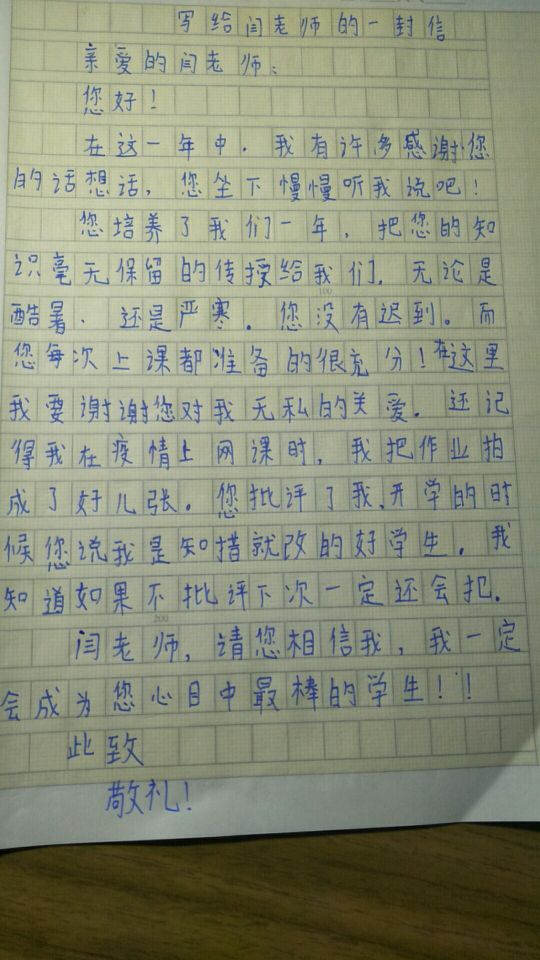 写给闫老师的一封信
亲爱的闫老师：
您好！
在这一年中．我有许多感谢您
的话想话，您坐下慢慢听我说吧！
您培养了我们一年，把您的知
识毫无保留的传授给我们，无论是
酷暑、还是严寒．您没有迟到。而
您每次上课都准备的很充分！在这里
我要谢谢您对我无私的关爱．还记
得我在疫情上网课时，我把作业拍
成了好几张。您批评了我，开学的时
候您说我是知措就改的好学生．我
知道如果不批评下次一定还会犯．
闫老师，请您相信我，我一定
会成为您心目中最棒的学生！！
此致
敬礼！
100
200